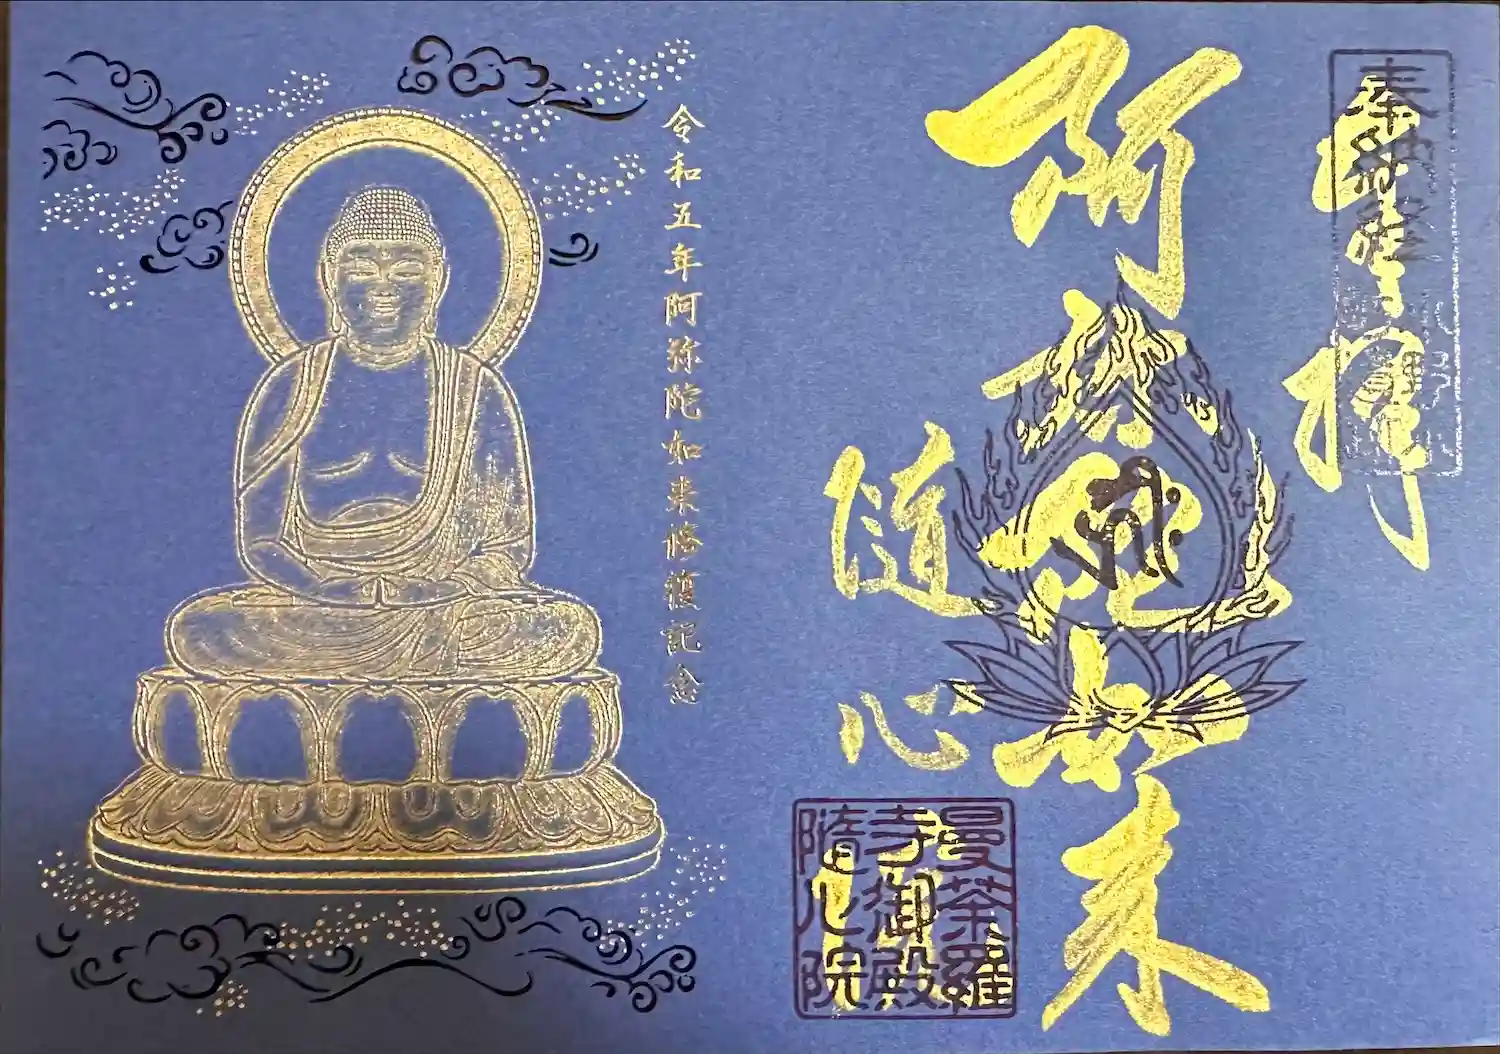 奉拝
阿弥陀如来
随心院
曼荼羅
寺御殿
隨心院
令和五年阿弥陀如来修復記念